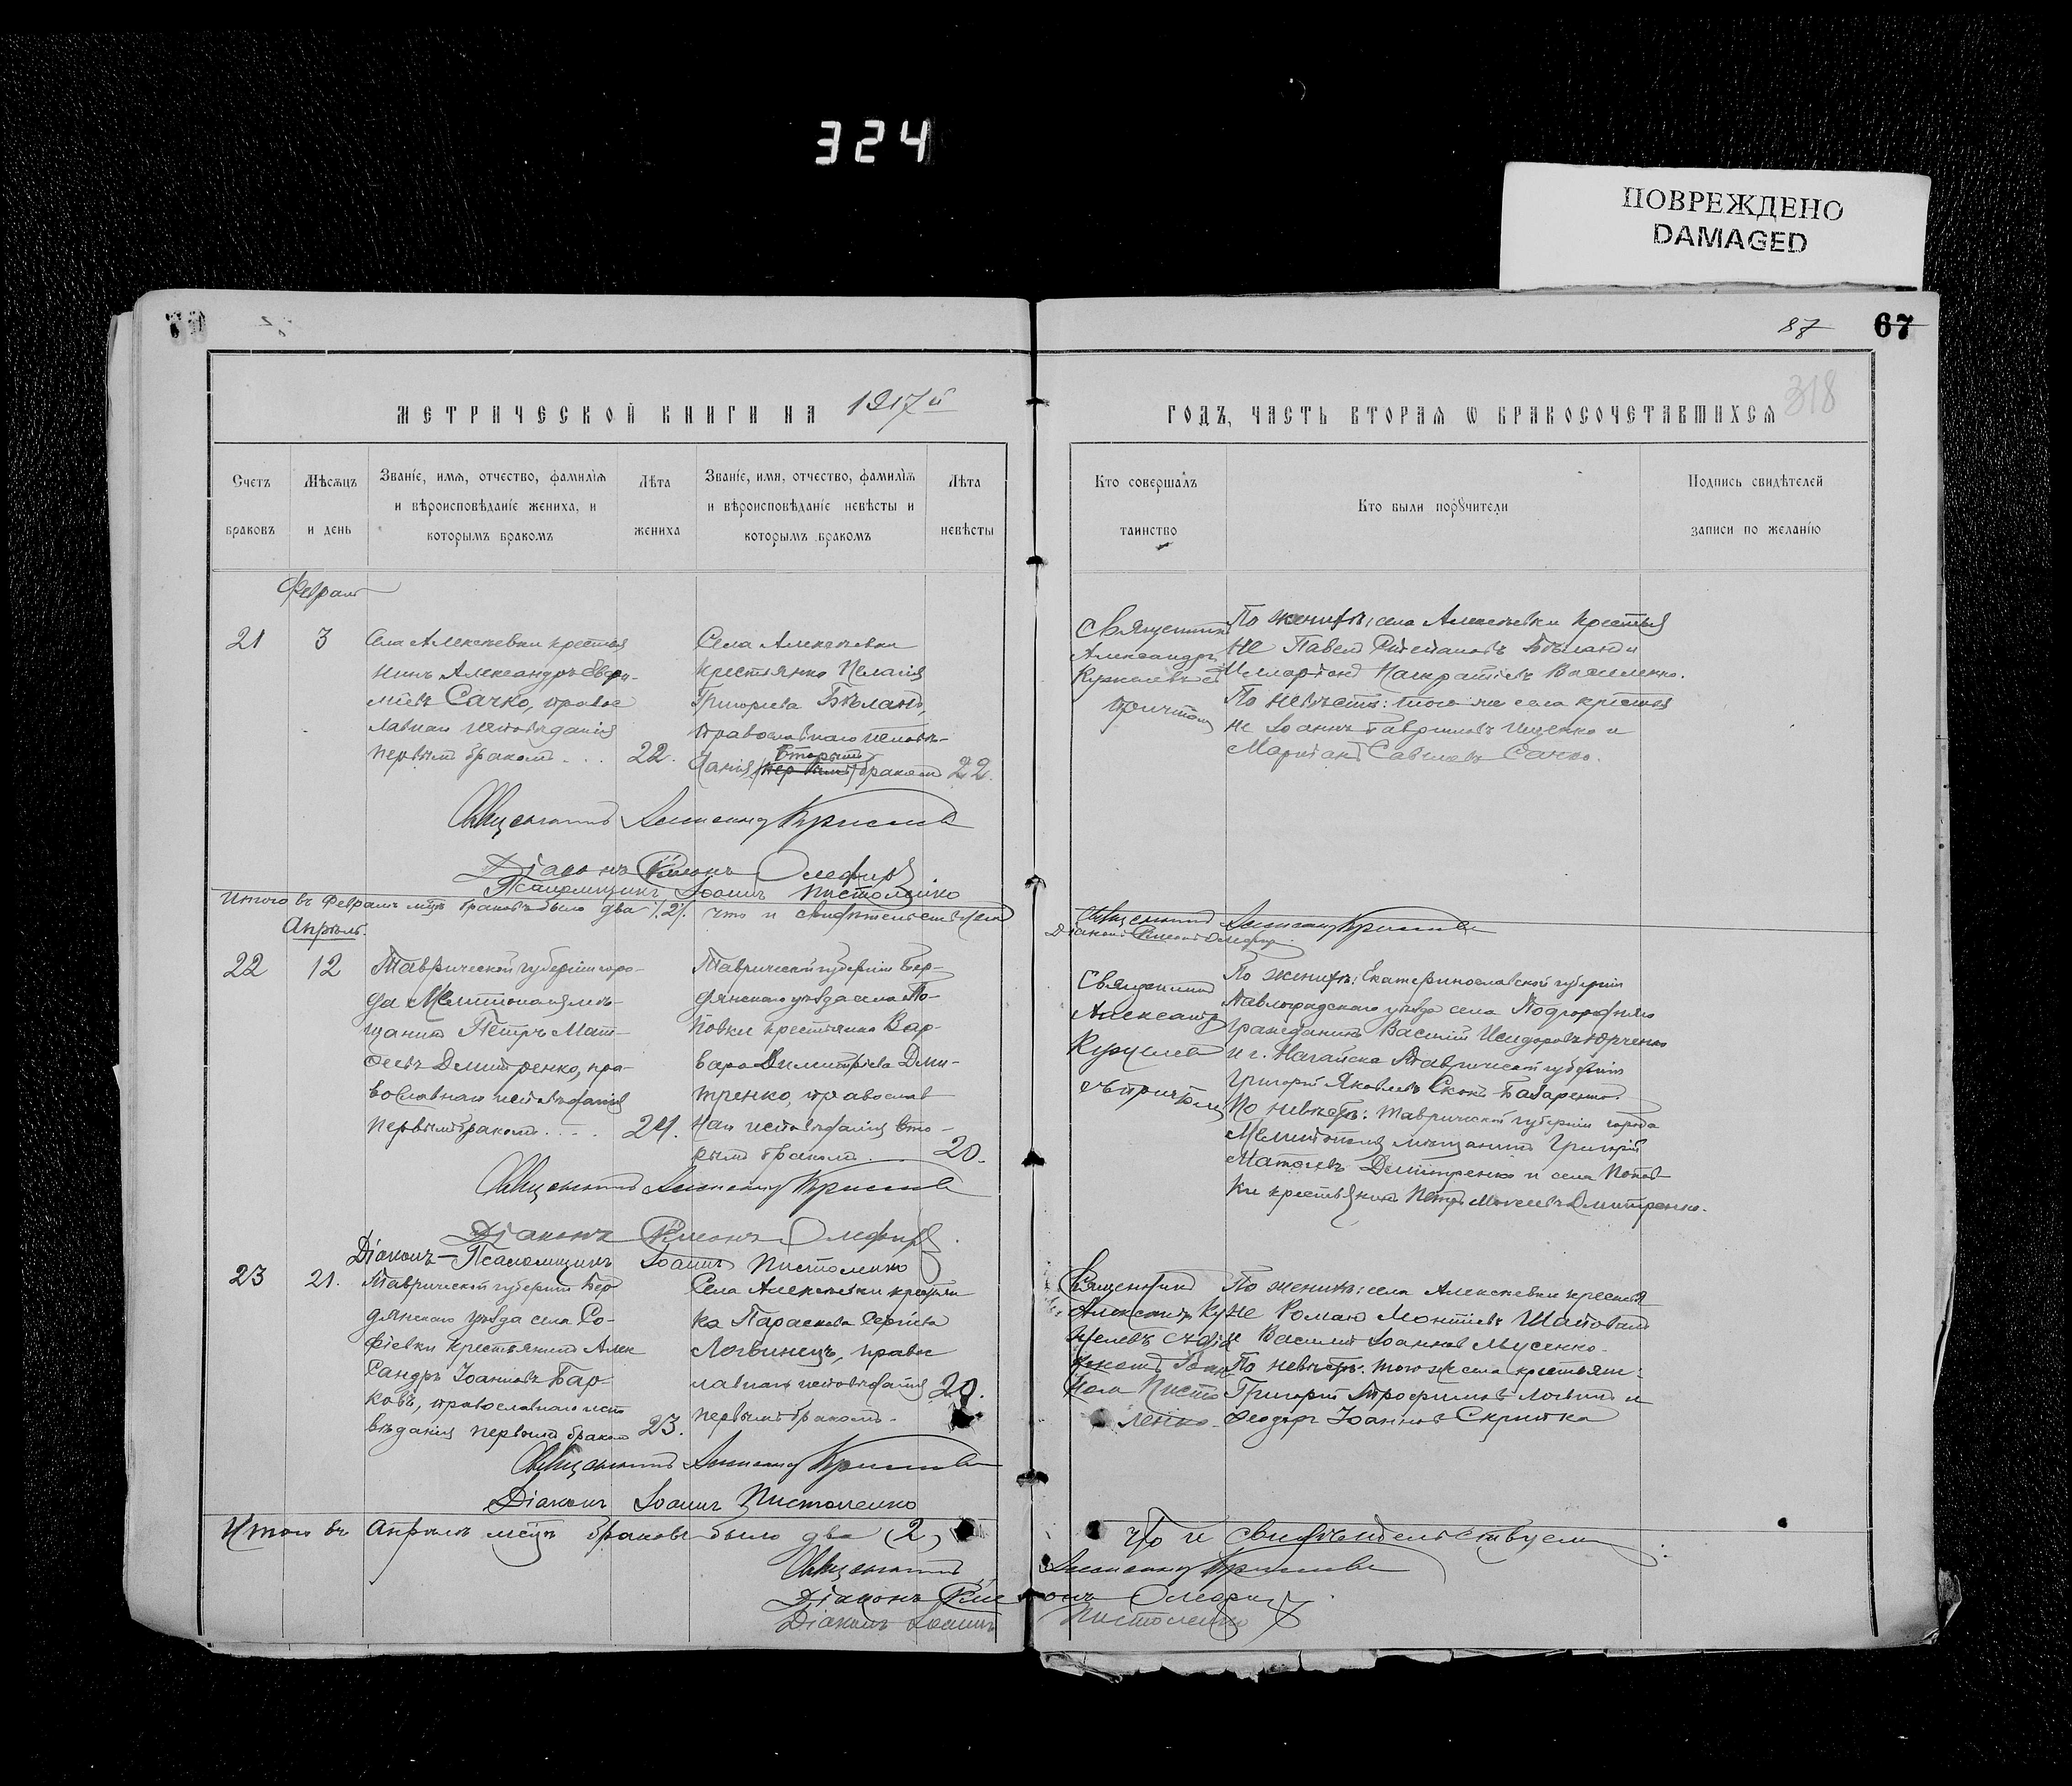 324
ПОВРЕЖДЕНО
DAMAGED
87
67
318
МЕТРИЧЕСКОЙ КНИГИ НА 1917й
ГОДЪ, ЧАСТЬ ВТОРАЯ Ѡ БРАКОСОЧЕТАВШИХСЯ
Счетъ браковъ
Мѣсяцъ и день
Званіе, имя, отчество, фамилія
и вѣроисповѣданіе жениха, и
которымъ бракомъ
Лѣта жениха
Званіе, имя, отчество, фамилія
и вѣроисповѣданіе невѣсты и
которымъ бракомъ
Лѣта невѣсты
Кто совершалъ таинство
Кто были порꙋчители
Подпись свидѣтелей
записи по желанію
Февраль
21
3
Села Алексѣевки крестья
нинъ Александръ Евѳи-
міевъ Сачко, правос
лавнаго исповѣданія
первымъ бракомъ . . .
22.
Села Алексѣевки
крестьянка Пелагія
Григорьева Бѣланъ,
православнаго исповѣ-
вторымъ
данія (первымъ) бракомъ
22.
Священникъ
Александръ
причтомъ
По женихѣ: села Алексѣевки крестья
не Павелъ Стефановъ Бѣланъ и
Илларіонъ Панкратіевъ Василенко.
По невѣстѣ: того же села крестья
не Іоаннъ Гавриловъ Ищенко и
Маріанъ Савеловъ Сачко.
Священникъ Александръ
Діаконъ Симонъ Олефиръ
Псаломщикъ Іоаннъ Пистоленко
Итого въ Февралѣ мцѣ браковъ было два /2/. что и свидѣтельствуемъ
Священникъ Александръ
Діаконъ Симонъ Олефиръ.
Апрѣль.
22
12
Таврической губерніи горо-
да Мелитополя мѣ-
щанинъ Петръ Мат-
ѳеевъ Дмитренко, пра-
вославнаго исповѣданія
первымъ бракомъ . . . .
24.
Таврической губерніи Бер-
дянскаго уѣзда села По-
повки крестьянка Вар-
вара Димитріева Дми-
тренко, православ
наго исповѣданія вто-
рымъ бракомъ . . .
20.
Священникъ
Александръ
съ причтомъ
По женихѣ: Екатеринославской губерніи
Павлоградскаго уѣзда села Подгороднаго
гражданинъ Василій Исидоровъ Юрченко
и г. Нагайска Таврической губерніи
Григорій Яковлевъ
По невѣстѣ: Таврической губерніи города
Мелитополя мѣщанинъ Григорій
Матѳеевъ Дмитренко и села Попов
ки крестьянинъ Петръ Моисеевъ Дмитренко.
Священникъ Александръ
Діаконъ Симонъ Олефиръ
Діаконъ-Псаломщикъ Іоаннъ Пистоленко
23
21.
Таврической губерніи Бер
дянскаго уѣзда села Со-
фіевки крестьянинъ Алек
сандръ Іоанновъ Бар-
ковъ, православнаго испо
вѣданія первымъ бракомъ
23.
Села Алексѣевки крестьян
ка Параскева Сергіева
Логвинецъ, правос
лавнаго исповѣданія
первымъ бракомъ.
20.
Священникъ
Александръ
съ діа
кономъ Іоан
номъ Писто
ленко
По женихѣ: села Алексѣевки крестья
не Романъ Леонтіевъ Шаповалъ
и Василій Іоанновъ Мусенко.
По невѣстѣ: того же села крестьяне:
Григорій Трофимовъ Логвинъ и
Ѳеодоръ Іоанновъ Скрипка
Священникъ Александръ
Діаконъ Іоаннъ Пистоленко
Итого въ Апрѣлѣ мцѣ браковъ было два (2)
что и свидѣтельствуемъ
Священникъ Александръ
Діаконъ Симонъ Олефиръ
Діаконъ Іоаннъ Пистоленко